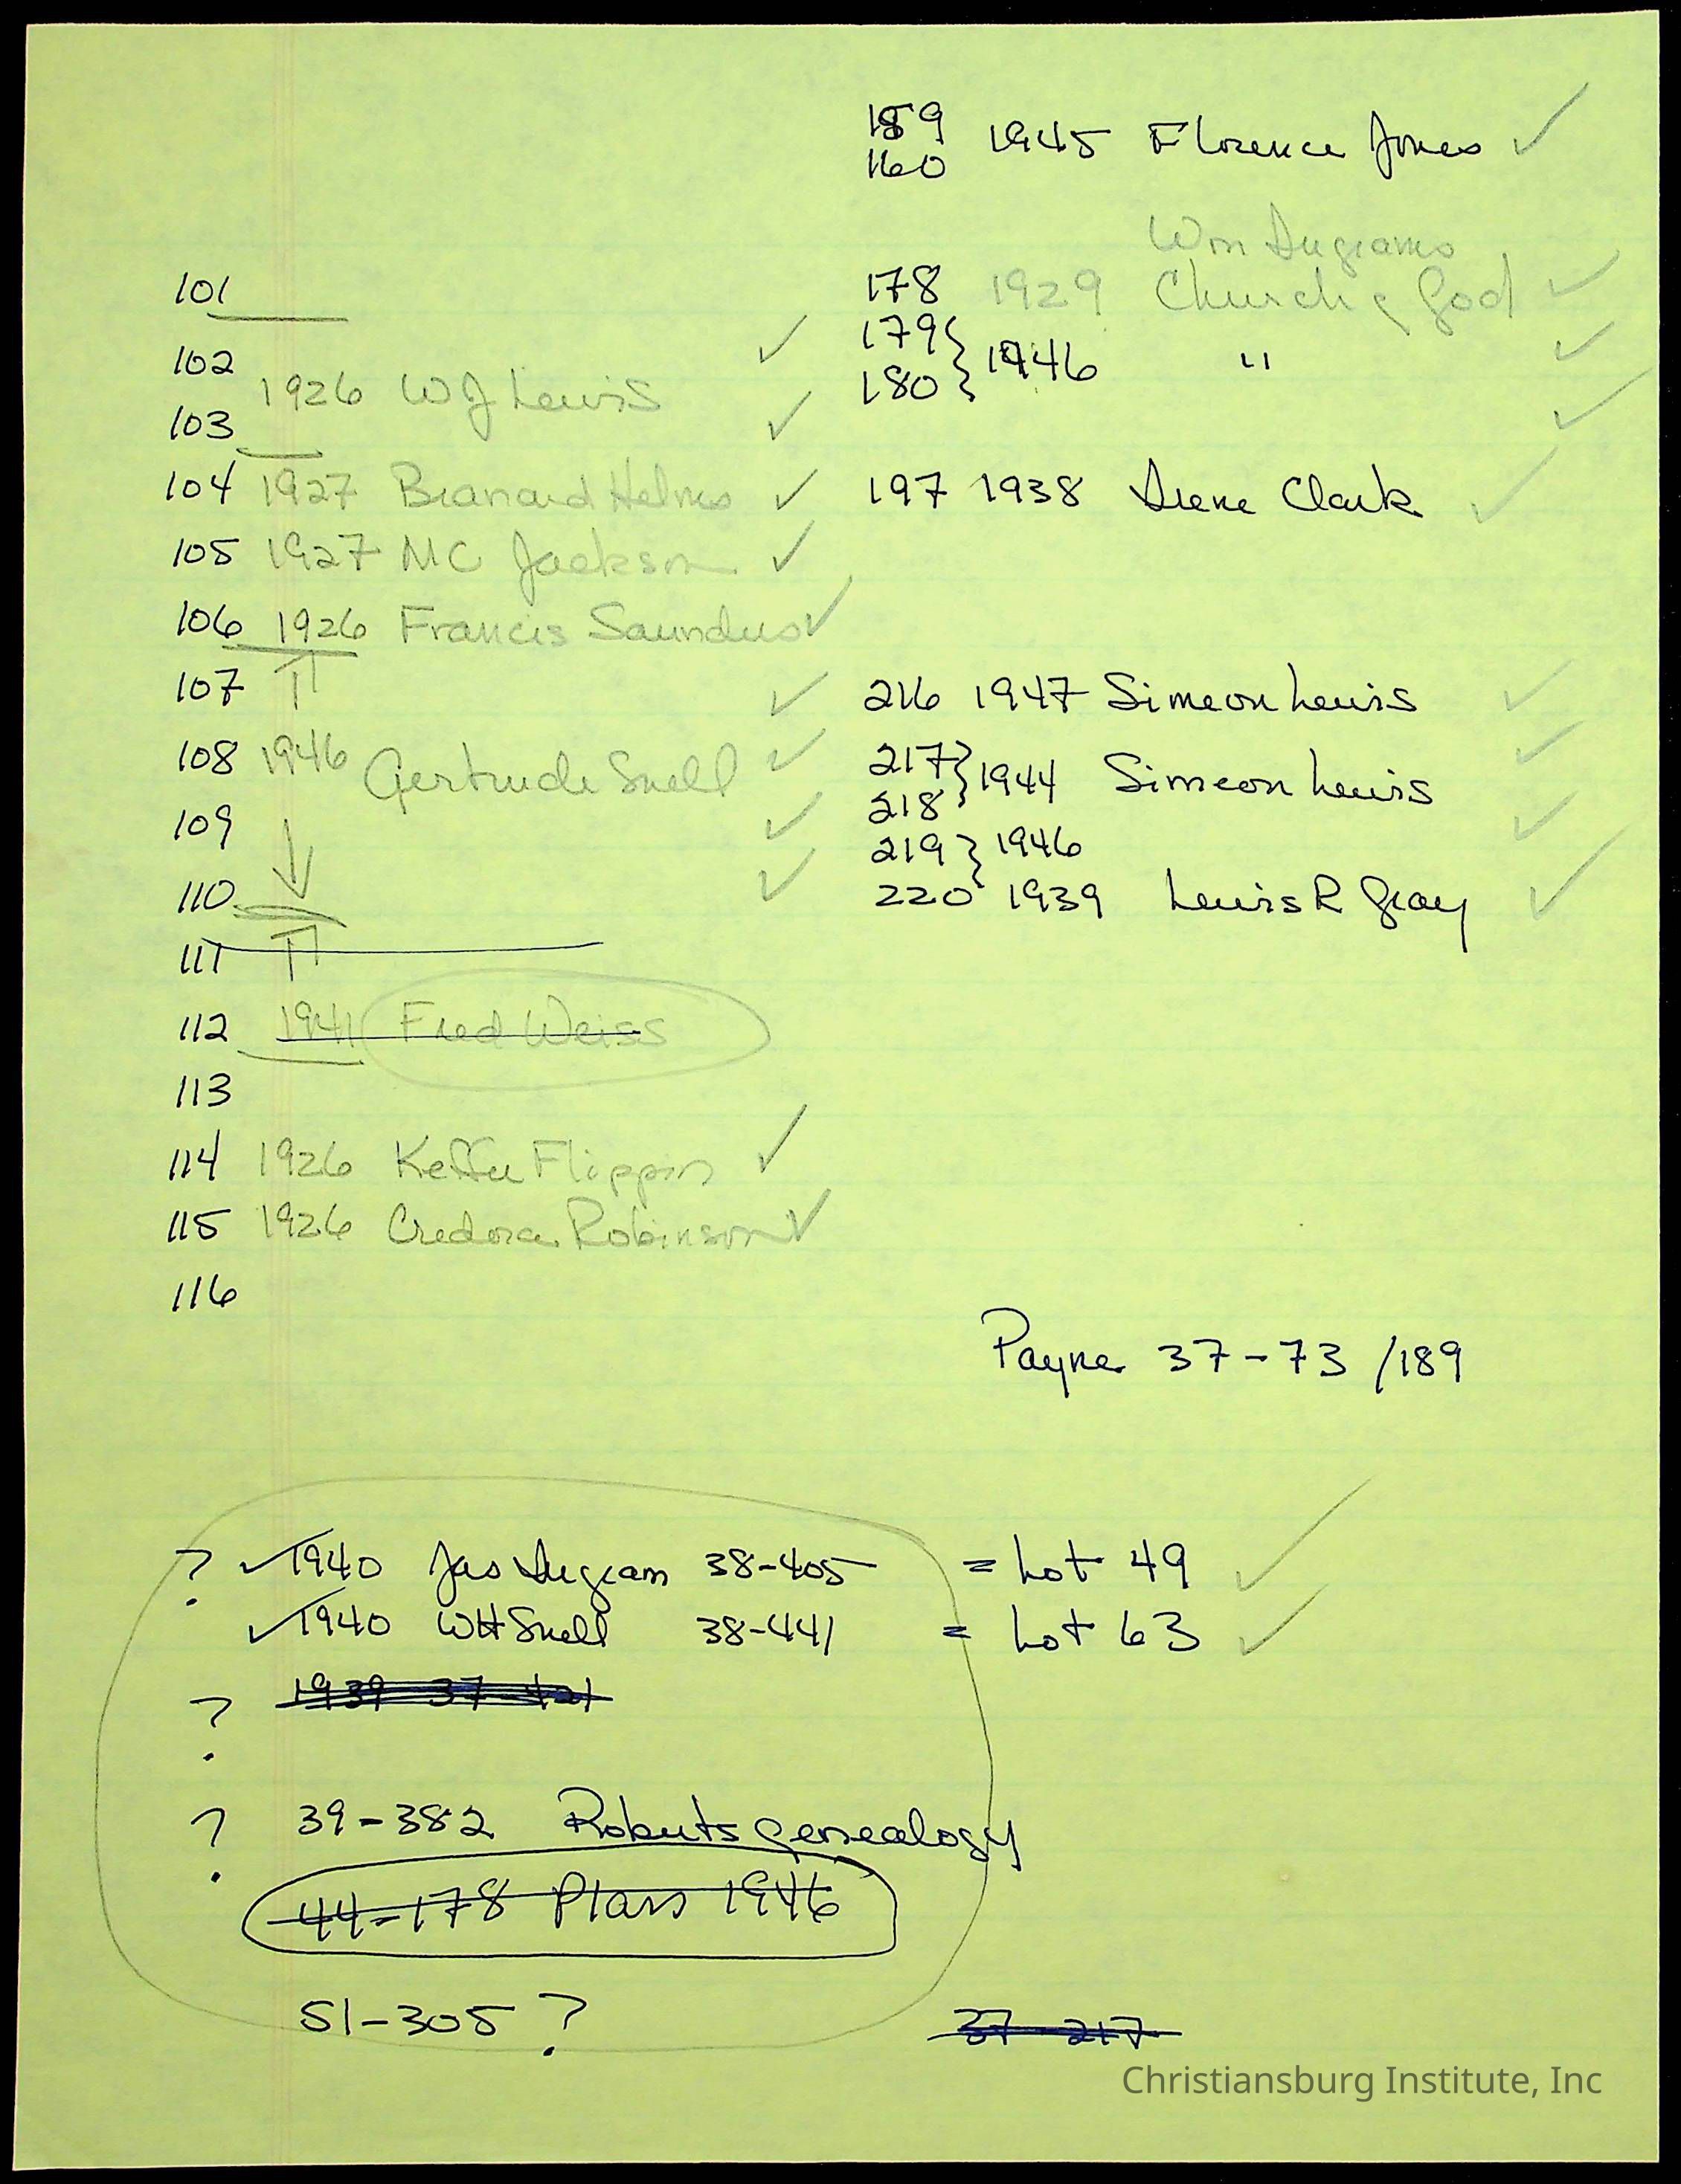 101
102
1926 WJ Lewis
103
104 1927 Branard Helms
105 1927 MC Jackson
106 1926 Francis Saunders
107
108 1946 Gertrude Snell
109
110
111
112 1941 Fred Weiss
113
114 1926 Keffer Flippin
115 1926 Credora Robinson
116
159
160 1945 Florence Jones
Wm Ingrams
178 1929 Church of God
179
180 } 1946 "
197 1938 Irene Clark
216 1947 Simeon Lewis
217
218 } 1944 Simeon Lewis
219 } 1946
220 1939 Lewis R Gray
Payne 37-73 /189
? ✓ 1940 Jas Ingram 38-405 = Lot 49 ✓
✓ 1940 WH Snell 38-441 = Lot 63 ✓
? 1939 37-421
? 39-382 Roberts genealogy
44-178 Plans 1946
51-305 ?
37-217
Christiansburg Institute, Inc